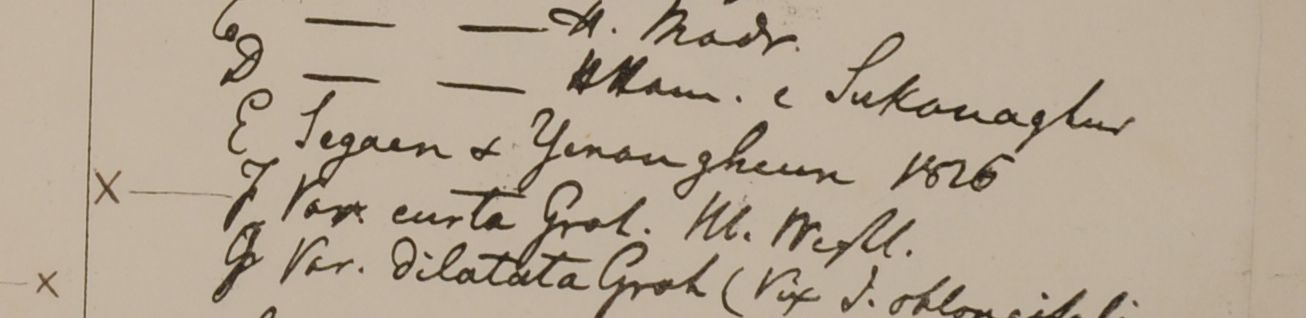 C — — H. Madr.
D — — HHam. e Sukanaghur
E Segaen & Yenangheun 1826
F Var. curta Grah. Hb. Wight.
G Var. dilatata Grah (Vix J. oblongifoli